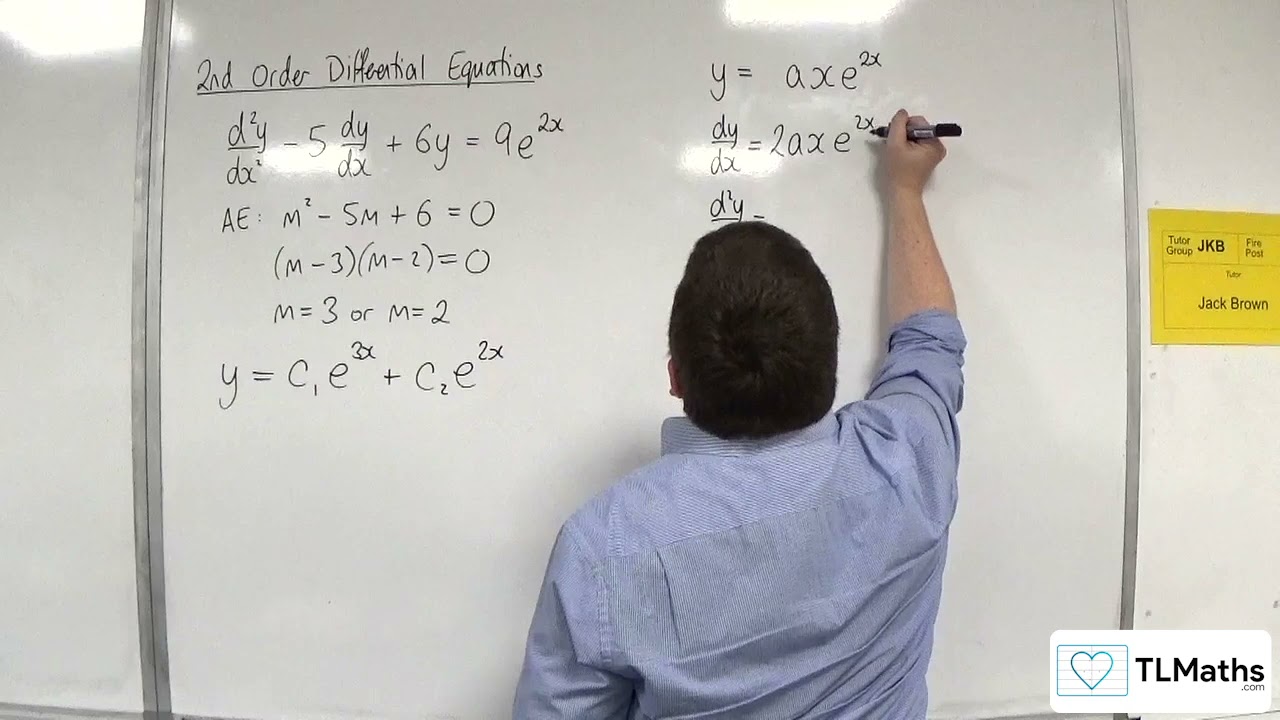 2nd Order Differential Equations
d²y/dx² - 5 dy/dx + 6y = 9e^2x
AE: m² - 5m + 6 = 0
(m - 3)(m - 2) = 0
m = 3 or m = 2
y = C₁e^3x + C₂e^2x
y = axe^2x
dy/dx = 2axe^2x
d²y =
Tutor Group JKB
Fire Post
Tutor
Jack Brown
TLMaths
.com